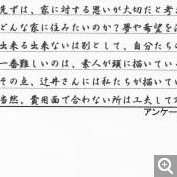 先ずは、家に対する思いが大切だと考
どんな家に住みたいのか?夢や希望を
出来る出来ないは別として、自分たち
一番難しいのは、素人が頭に描いてい
その点、辻井さんには私たちが描いてい
当然、費用面で合わない所は工夫して
アンケー